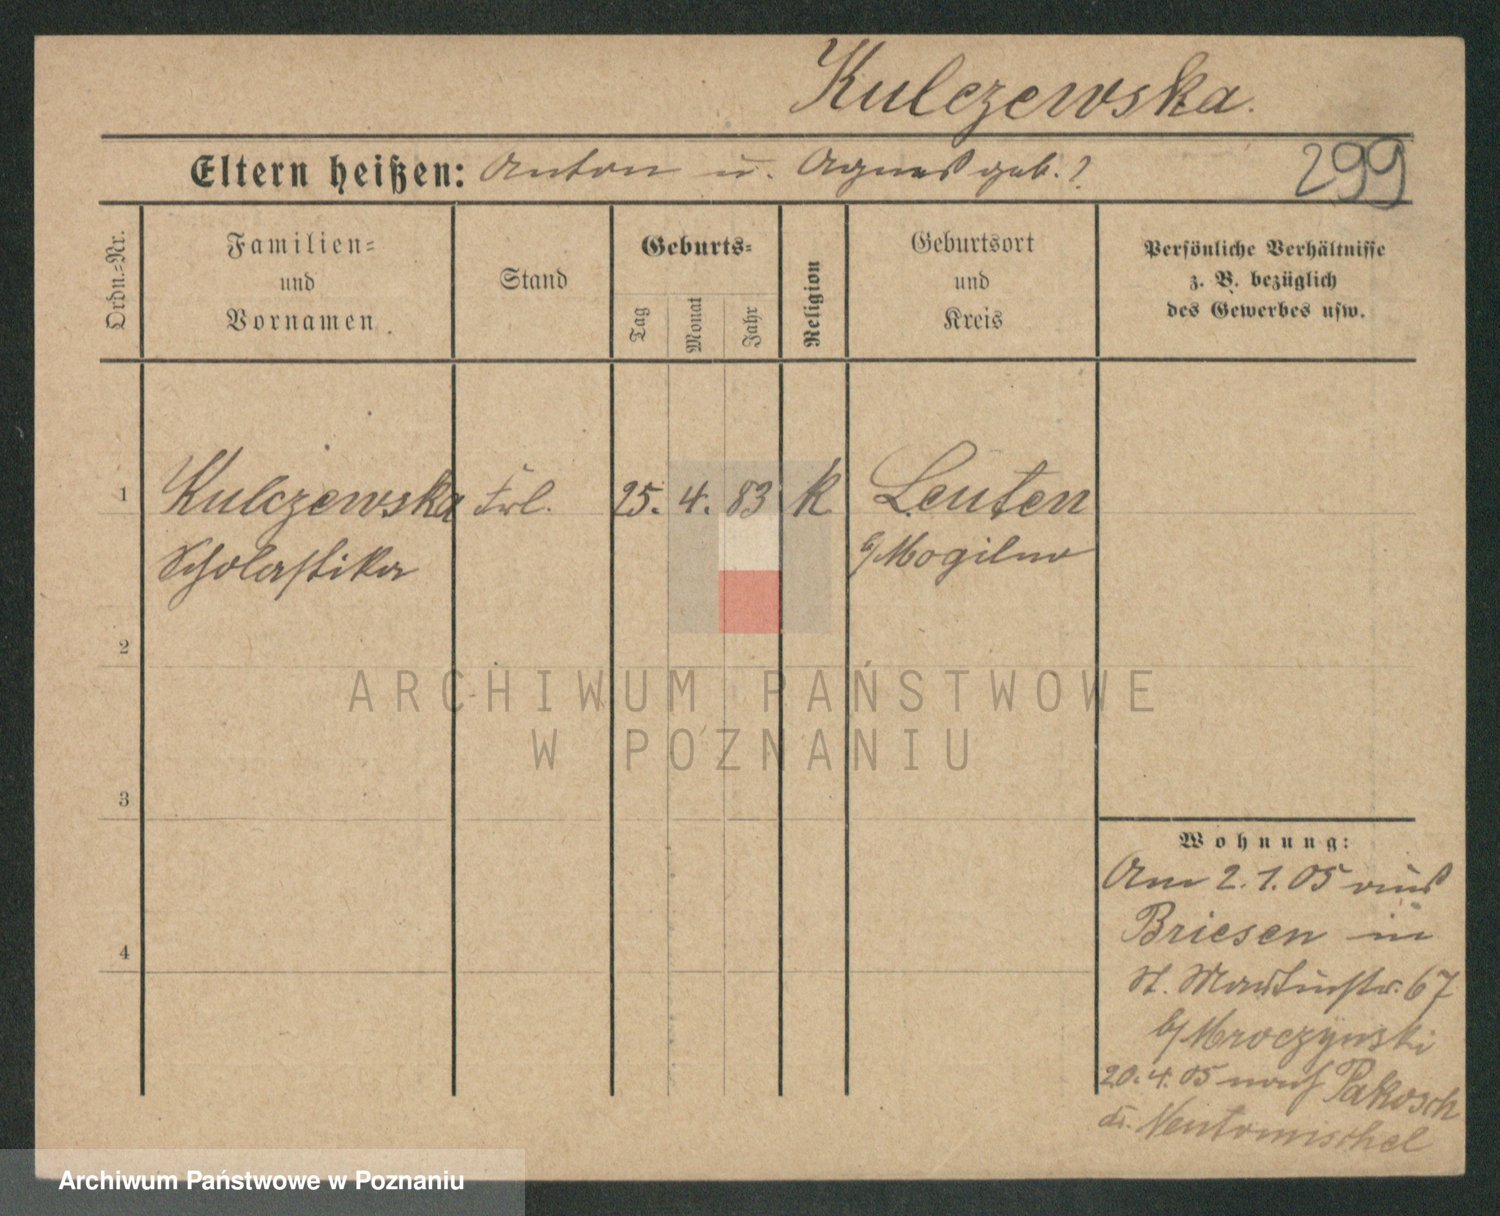 Kulczewska.
Eltern heißen: Anton u. Agnes geb. ?
299
Ordn.=Nr.
Familien=
und
Vornamen
Stand
Geburts=
Tag
Monat
Jahr
Religion
Geburtsort
und
Kreis
Persönliche Verhältnisse
z. B. bezüglich
des Gewerbes usw.
1 Kulczewska Frl. 25. 4. 83 k Leuten
Scholastika b/Mogilno
2
ARCHIWUM PAŃSTWOWE
W POZNANIU
3
Wohnung:
Am 2.1.05 aus
Briesen in
St. Martinstr. 67
b/Mroczynski
20.4.05 nach Pakosch
Kr. Neutomischel
4
Archiwum Państwowe w Poznaniu